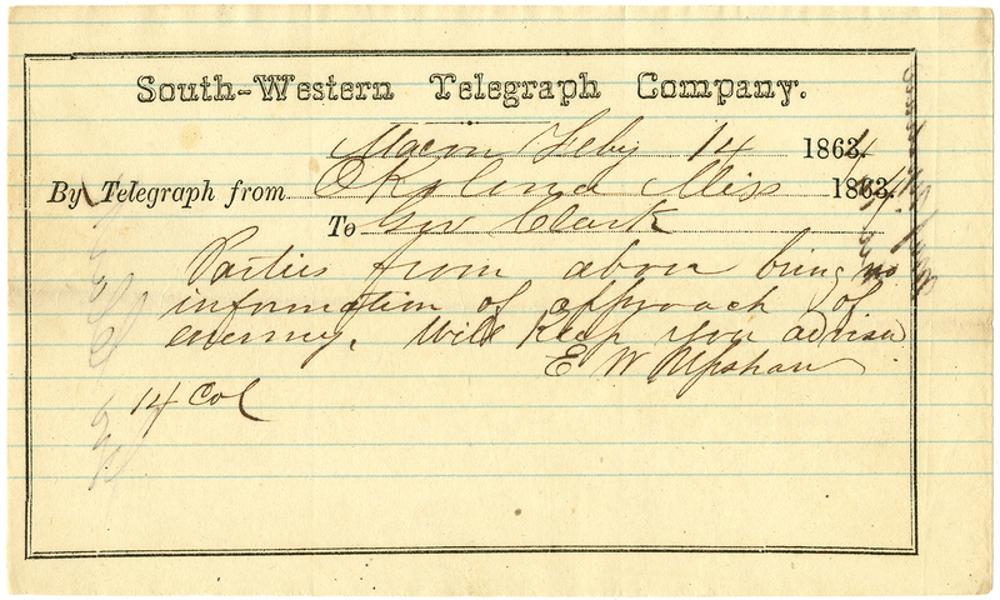 South-Western Telegraph Company.
Macon Feby 14 1864
By Telegraph from Okolona Miss 1864.
To Gov Clark
Parties from above bring no
information of approach of
enemy. Will Keep you advised
E W Upshaw
14 Col